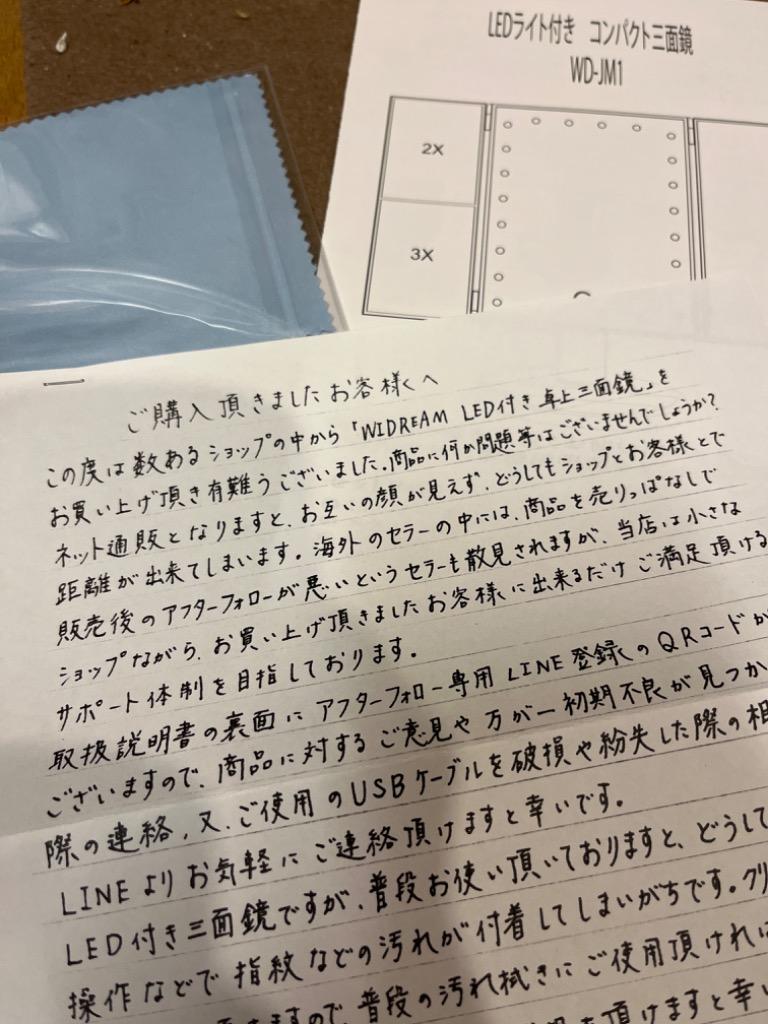 LEDライト付き コンパクト三面鏡
WD-JM1
2X
3X
ご購入頂きましたお客様へ
この度は数あるショップの中から「WIDREAM LED付き卓上三面鏡」を
お買い上げ頂き有難うございました。商品に何か問題等はございませんでしょうか?
ネット通販となりますと、お互いの顔が見えず、どうしてもショップとお客様とで
距離が出来てしまいます。海外のセラーの中には、商品を売りっぱなしで
販売後のアフターフォローが悪いというセラーも散見されますが、当店は小さな
ショップながら、お買い上げ頂きましたお客様に出来るだけご満足頂ける
サポート体制を目指しております。
取扱説明書の裏面にアフターフォロー専用LINE登録のQRコードが
ございますので、商品に対するご意見や万が一初期不良が見つか
際の連絡、又、ご使用のUSBケーブルを破損や紛失した際の相
LINEよりお気軽にご連絡頂けますと幸いです。
LED付き三面鏡ですが、普段お使い頂いておりますと、どうして
操作などで指紋などの汚れが付着してしまいがちです。クリ
きますので、普段の汚れ拭きにご使用頂ければ
を頂けますと幸い